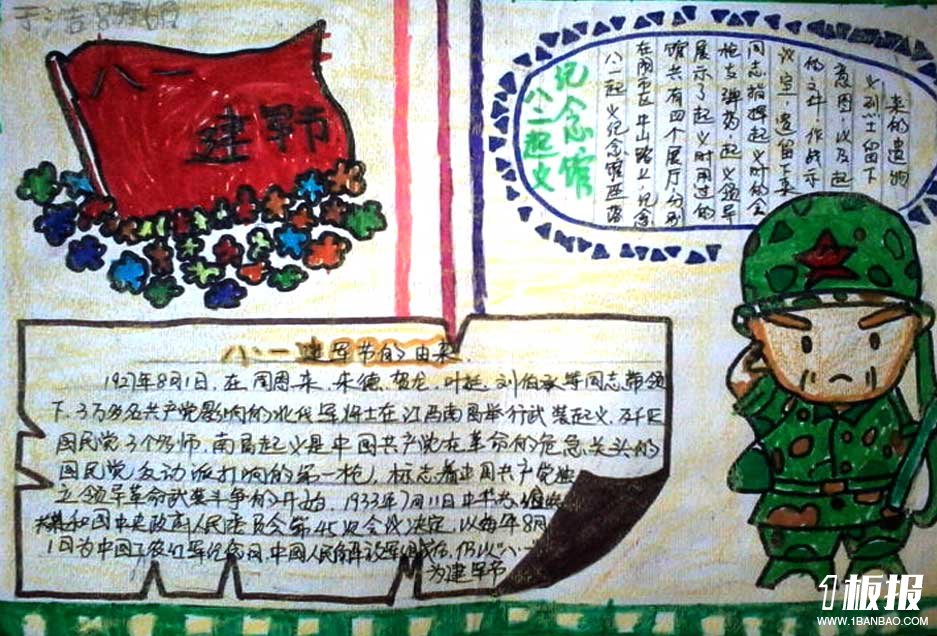 八一
建军节
纪念馆
八一起义
八一起义纪念馆座落
在南昌市区中山路上,纪念
馆共有四个展厅,分别
展示了起义时用过的
枪支弹药,起义领导
同志指挥起义时的会
议室,遗留下来
的文件、作战示
意图,以及起
义烈士留下
来的遗物
八一建军节的由来.
1927年8月1日,在周恩来、朱德、贺龙、叶挺、刘伯承等同志带领
下,3万多名共产党影响的北伐军将士在江西南昌举行武装起义,歼灭
国民党3个师,南昌起义是中国共产党在革命的危急关头的
国民党反动派打响的第一枪,标志着中国共产党独
立领军革命武装斗争的开始.1933年7月11日中华苏维埃
共和国中央政府人民委员会第45次会议决定,以每年8月
1日为中国工农红军纪念日,中国人民解放军组成后,仍以"八一"
为建军节
1板报
WWW.1BANBAO.COM